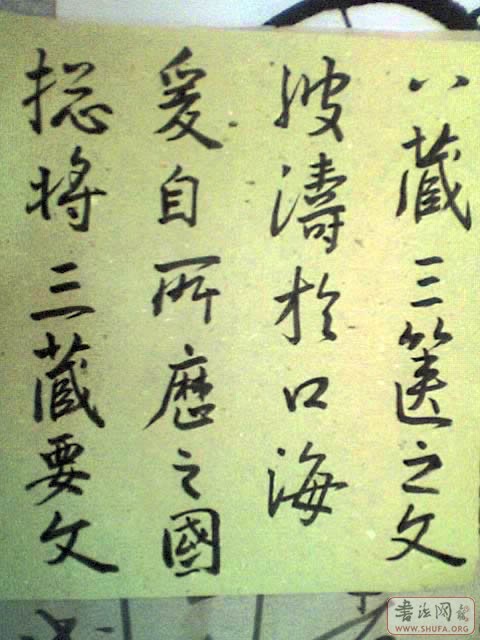 八藏三箧之文
波濤於口海
爰自所歷之國
捴將三藏要文
書法网
WWW.SHUFA.ORG